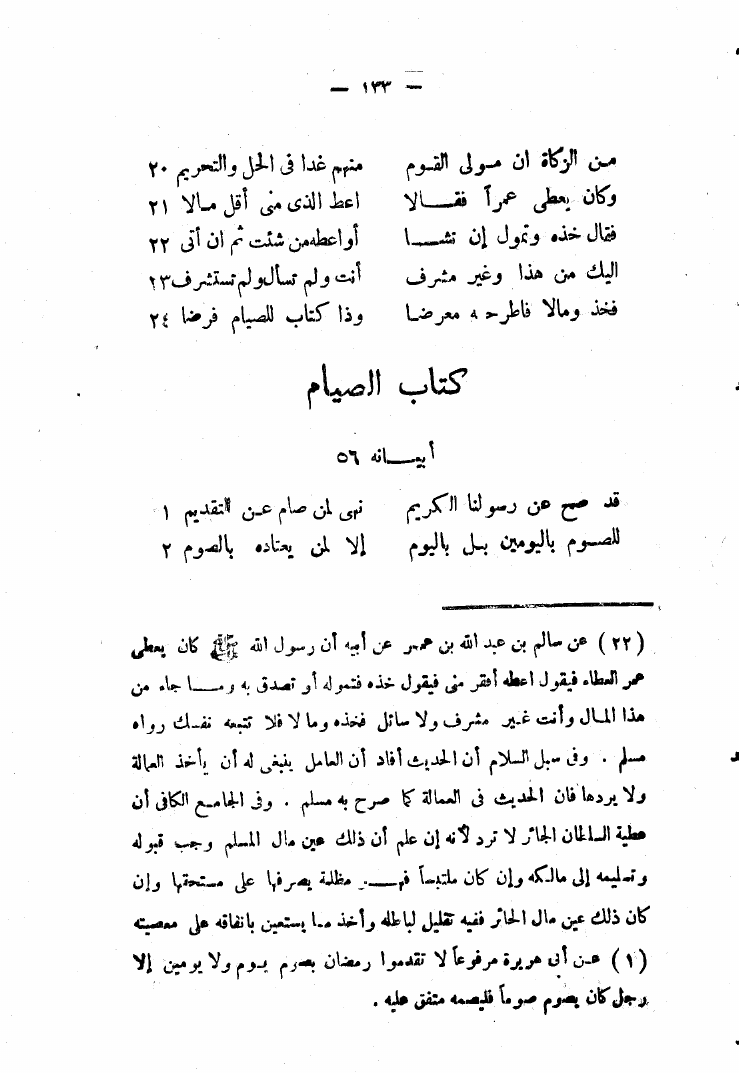 — ١٣٣ —
من الزكاة ان مولى القوم منهم غدا فى الحل والتحريم ٢٠
وكان يعطى عمراً فقالا اعط الذى منى أقل مالا ٢١
فقال خذه وتمول إن تشا أو اعطه من شئت ثم ان أتى ٢٢
اليك من هذا وغير مشرف أنت ولم تسأل ولم تستشرف ٢٣
فخذ ومالا فاطرحه معرضا وذا كتاب للصيام فرضا ٢٤
كتاب الصيام
أبياته ٥٦
قد صح عن رسولنا الكريم نهى لمن صام عن التقديم ١
للصوم باليومين بل باليوم إلا لمن يعتاده بالصوم ٢
(٢٢) عن سالم بن عبد الله بن عمر عن أبيه أن رسول الله ﷺ كان يعطى
عمر العطاء فيقول اعطه أفقر منى فيقول خذه فتموله أو تصدق به وما جاء من
هذا المال وأنت غير مشرف ولا سائل فخذه وما لا فلا تتبعه نفسك رواه
مسلم . وفى سبل السلام أن الحديث أفاد أن العامل ينبغى له أن يأخذ العمالة
ولا يردها فان الحديث فى العمالة كما صرح به مسلم . وفى الجامع الكافى أن
عطية السلطان الجائر لا ترد لأنه إن علم أن ذلك عين مال المسلم وجب قبوله
وتسليمه إلى مالكه وإن كان ملتبساً فهو مظلمة يصرفها على مستحقها وإن
كان ذلك عين مال الجائر ففيه تقليل لباطله وأخذ ما يستعين بانفاقه على معصيته
(١) عن أبى هريرة مرفوعاً لا تقدموا رمضان بصوم يوم ولا يومين إلا
رجل كان يصوم صوماً فليصمه متفق عليه .